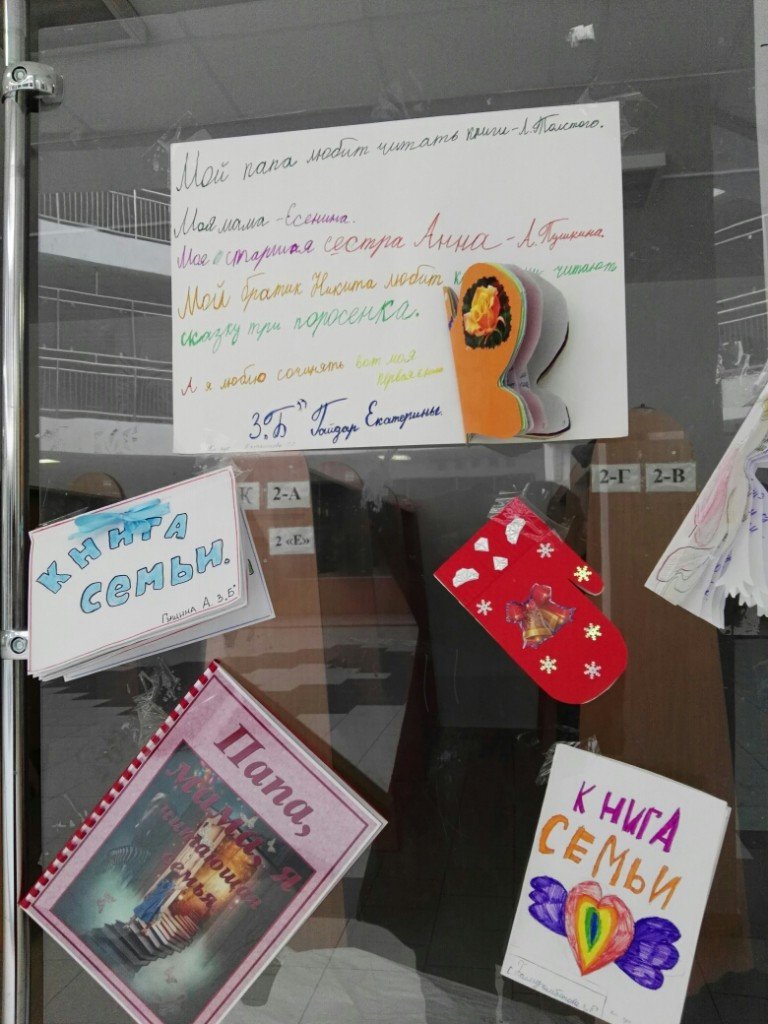 Мой папа любит читать книги-Л.Толстого.
Моя мама -Есенина.
Моя старшая сестра Анна-А.Пушкина.
Мой братик Никита любит читают
сказку три поросенка.
А я люблю сочинять вот моя
первая книга
3„Б" Гайдар Екатерины.
2-А
2 «Е»
2-Г
2-В
КНИГА
СЕМЬИ.
А. 3„Б"
Папа,
мама, я
читающая
семья
КНИГА
СЕМЬИ